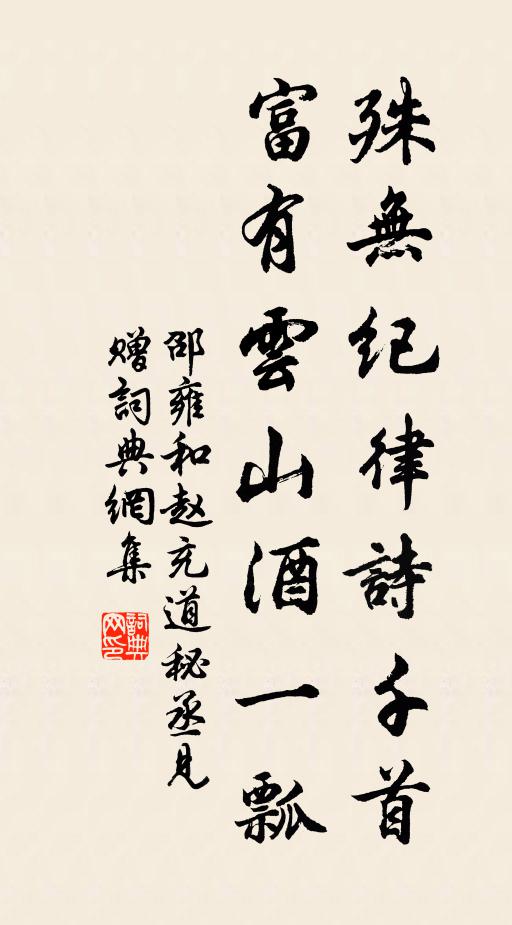 殊無紀律詩千首
富有雲山酒一瓢
邵雍和赵充道秘丞見
赠詞典網集
詞典网印